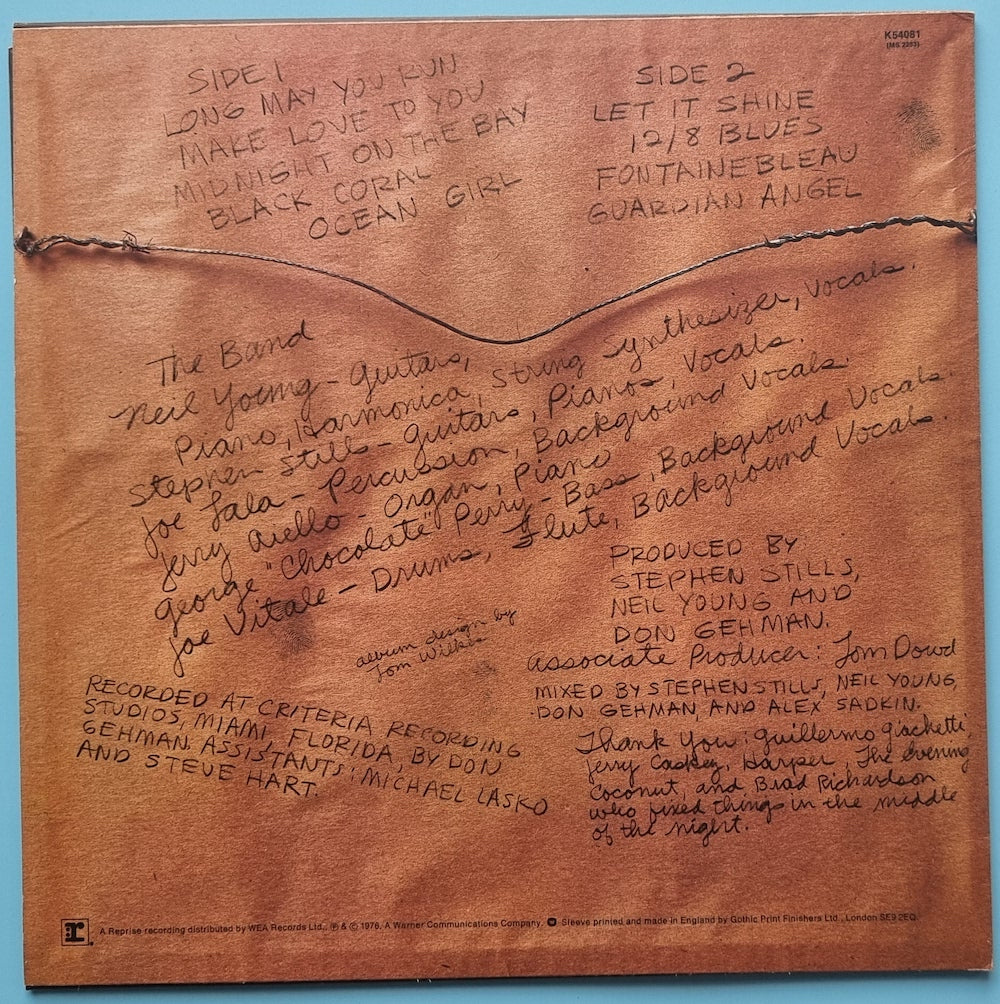 K54081
(MS 2253)
SIDE 1
LONG MAY YOU RUN
MAKE LOVE TO YOU
MIDNIGHT ON THE BAY
BLACK CORAL
OCEAN GIRL
SIDE 2
LET IT SHINE
12/8 BLUES
FONTAINEBLEAU
GUARDIAN ANGEL
The Band
Neil Young - Guitars,
Piano, Harmonica, String Synthesizer, Vocals.
Stephen Stills - Guitars, Pianos, Vocals.
Joe Lala - Percussion, Background Vocals.
Jerry Aiello - Organ, Piano
George "Chocolate" Perry - Bass, Background Vocals.
Joe Vitale - Drums, Flute, Background Vocals.
album design by
Tom Wilkes
PRODUCED BY
STEPHEN STILLS,
NEIL YOUNG AND
DON GEHMAN.
Associate Producer: Tom Dowd
MIXED BY STEPHEN STILLS, NEIL YOUNG,
DON GEHMAN, AND ALEX SADKIN.
Thank You: Guillermo Giachetti,
Jerry Caskey, Harper, The evening
Coconut, and Brad Richardson
who fixed things in the middle
of the night.
RECORDED AT CRITERIA RECORDING
STUDIOS, MIAMI, FLORIDA, BY DON
GEHMAN. ASSISTANTS: MICHAEL LASKO
AND STEVE HART.
r
A Reprise recording distributed by WEA Records Ltd., ℗ & © 1976, A Warner Communications Company. Sleeve printed and made in England by Gothic Print Finishers Ltd., London SE9 2EQ.